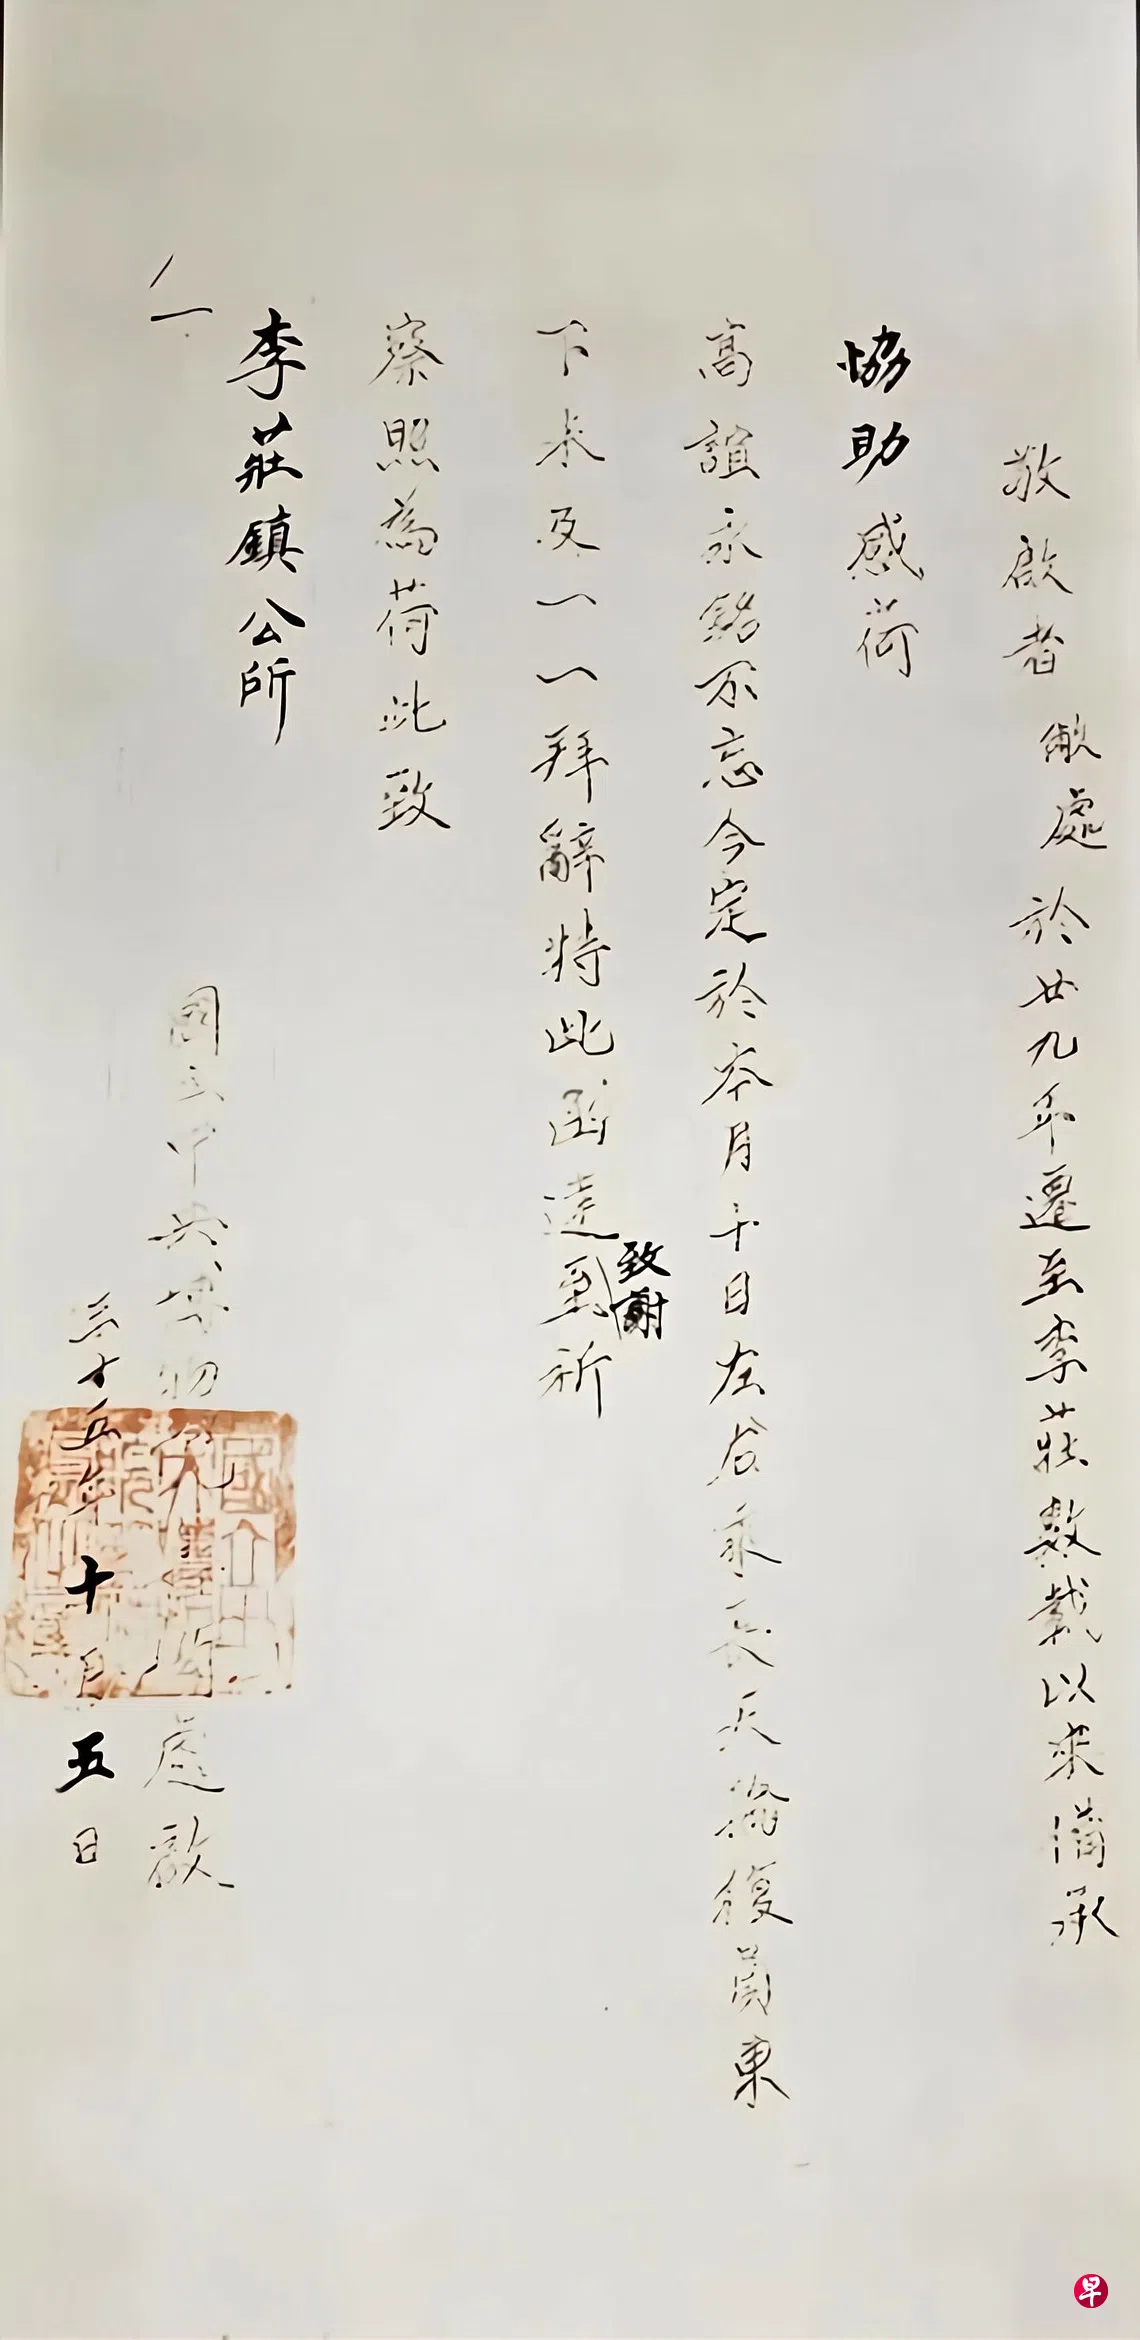 敬啟者敝處於廿九年遷至李莊數載以來備承
協助感荷
高誼永銘不忘今定於本月十日左右乘長天輪復員東
下未及一一拜辭特此函達致謝到祈
察照為荷此致
李莊鎮公所
國立中央博物處啟
三十五年十月五日
早